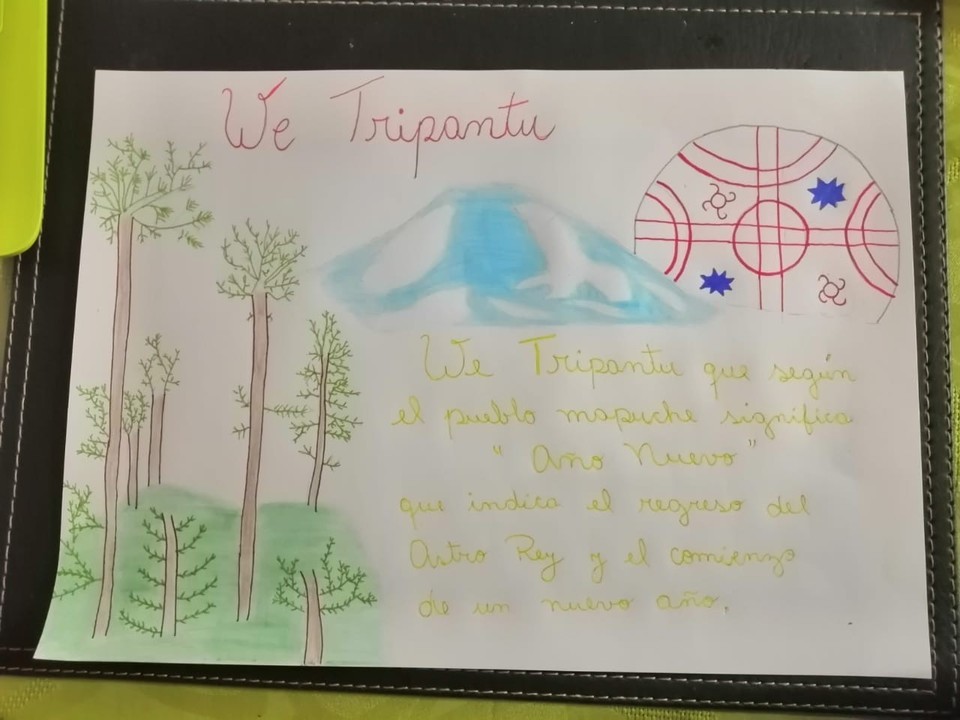 We Tripantu
We Tripantu que según
el pueblo mapuche significa
" Año Nuevo "
que indica el regreso del
Astro Rey y el comienzo
de un nuevo año.